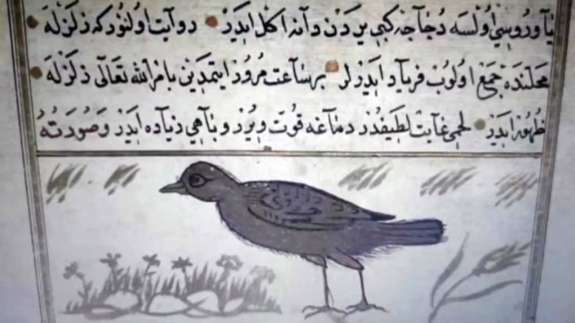 یاوروسی اولسه دجاجه کبی یردن دانه اکل ایدر روایت اولنور که زلزله
محلنده جمع اولوب فریاد ایدرلر بر ساعت مرور ایتمدین بامر الله تعالی زلزله
ظهور ایدر لحمی غایت لطیفدر دماغه قوت ویرر و باهی زیاده ایدر و صورته